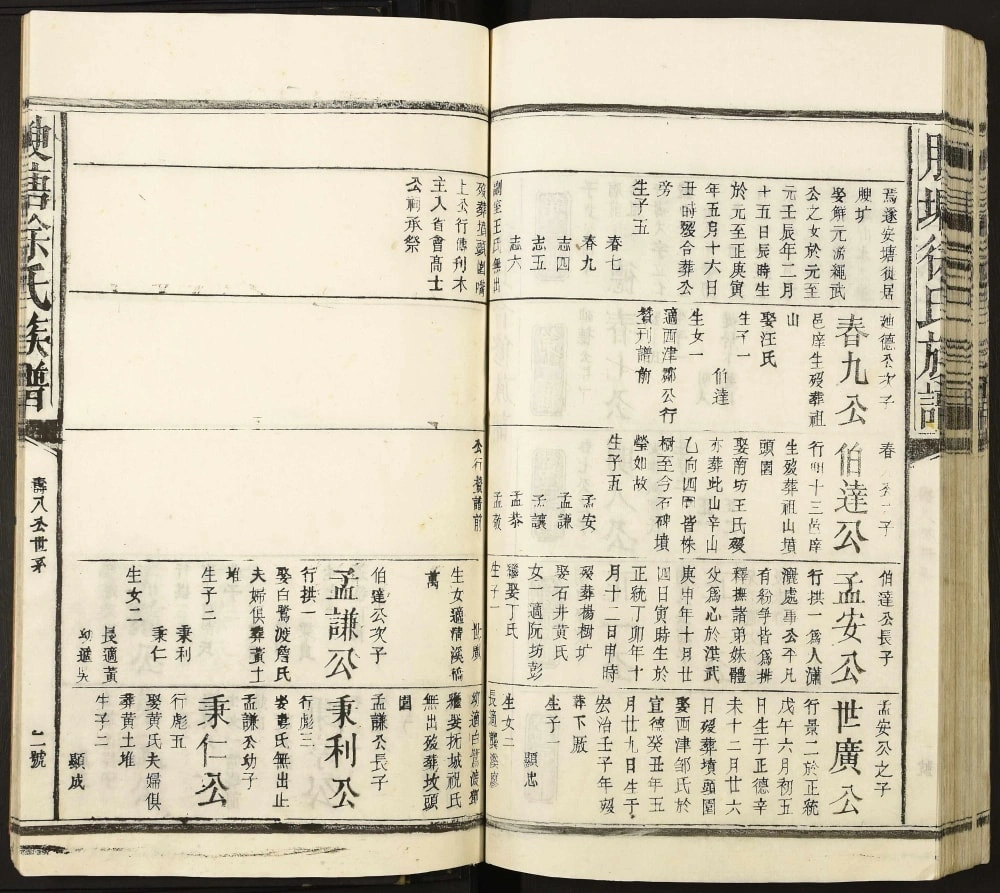 腴塘徐氏族譜
焉遂安塘徙居
腴圹
娶鮮元派繩武
公之女於元至
元壬辰年二月
十五日辰時生
於元至正庚寅
年五月十六日
丑時歿合葬公
旁
生子五
春七
春九
志四
志五
志六
公行
公祠承祭
主入省會高士
廸德公次子
春九公
邑庠生歿葬祖
山
娶汪氏
生子一
伯達
生女一
適西津鄒公行
贊刊譜前
春
子
伯達公
行明十三邑庠
生歿葬祖山墳
頭園
娶南坊王氏歿
亦葬此山辛山
乙向四圍皆株
樹至今石碑墳
塋如故
生子五
孟安
孟謙
孟讓
孟恭
孟敬
公行贊譜前
伯達公長子
孟安公
行拱一爲人瀟
灑處事公平凡
有紛爭皆爲排
釋撫諸弟妹體
父爲心於洪武
庚申年十月廿
四日寅時生於
正統丁卯年十
月十二日申時
歿葬楊樹圹
娶石井黃氏
女一適阮坊彭
繼娶丁氏
生子一
世廣
生女適清溪橋
萬
伯達公次子
孟謙公
行拱一
娶白鷺渡詹氏
夫婦俱葬黃土
堆
生子二
秉利
秉仁
生女二
長適黃
幼適吳
孟安公之子
世廣公
行景二於正統
戊午六月初五
日生于正德辛
未十二月廿六
日歿葬墳頭園
娶西津邹氏於
宣德癸丑年五
月廿九日生于
宏治壬子年歿
葬下廒
生子一
顯忠
生女二
無出歿葬坟頭
園
孟謙公長子
秉利公
行彪三
氏無出止
孟謙公幼子
秉仁公
行彪五
娶黃氏夫婦俱
葬黃土堆
生子二
顯成
壽八公世系
二號
腴塘徐氏族譜